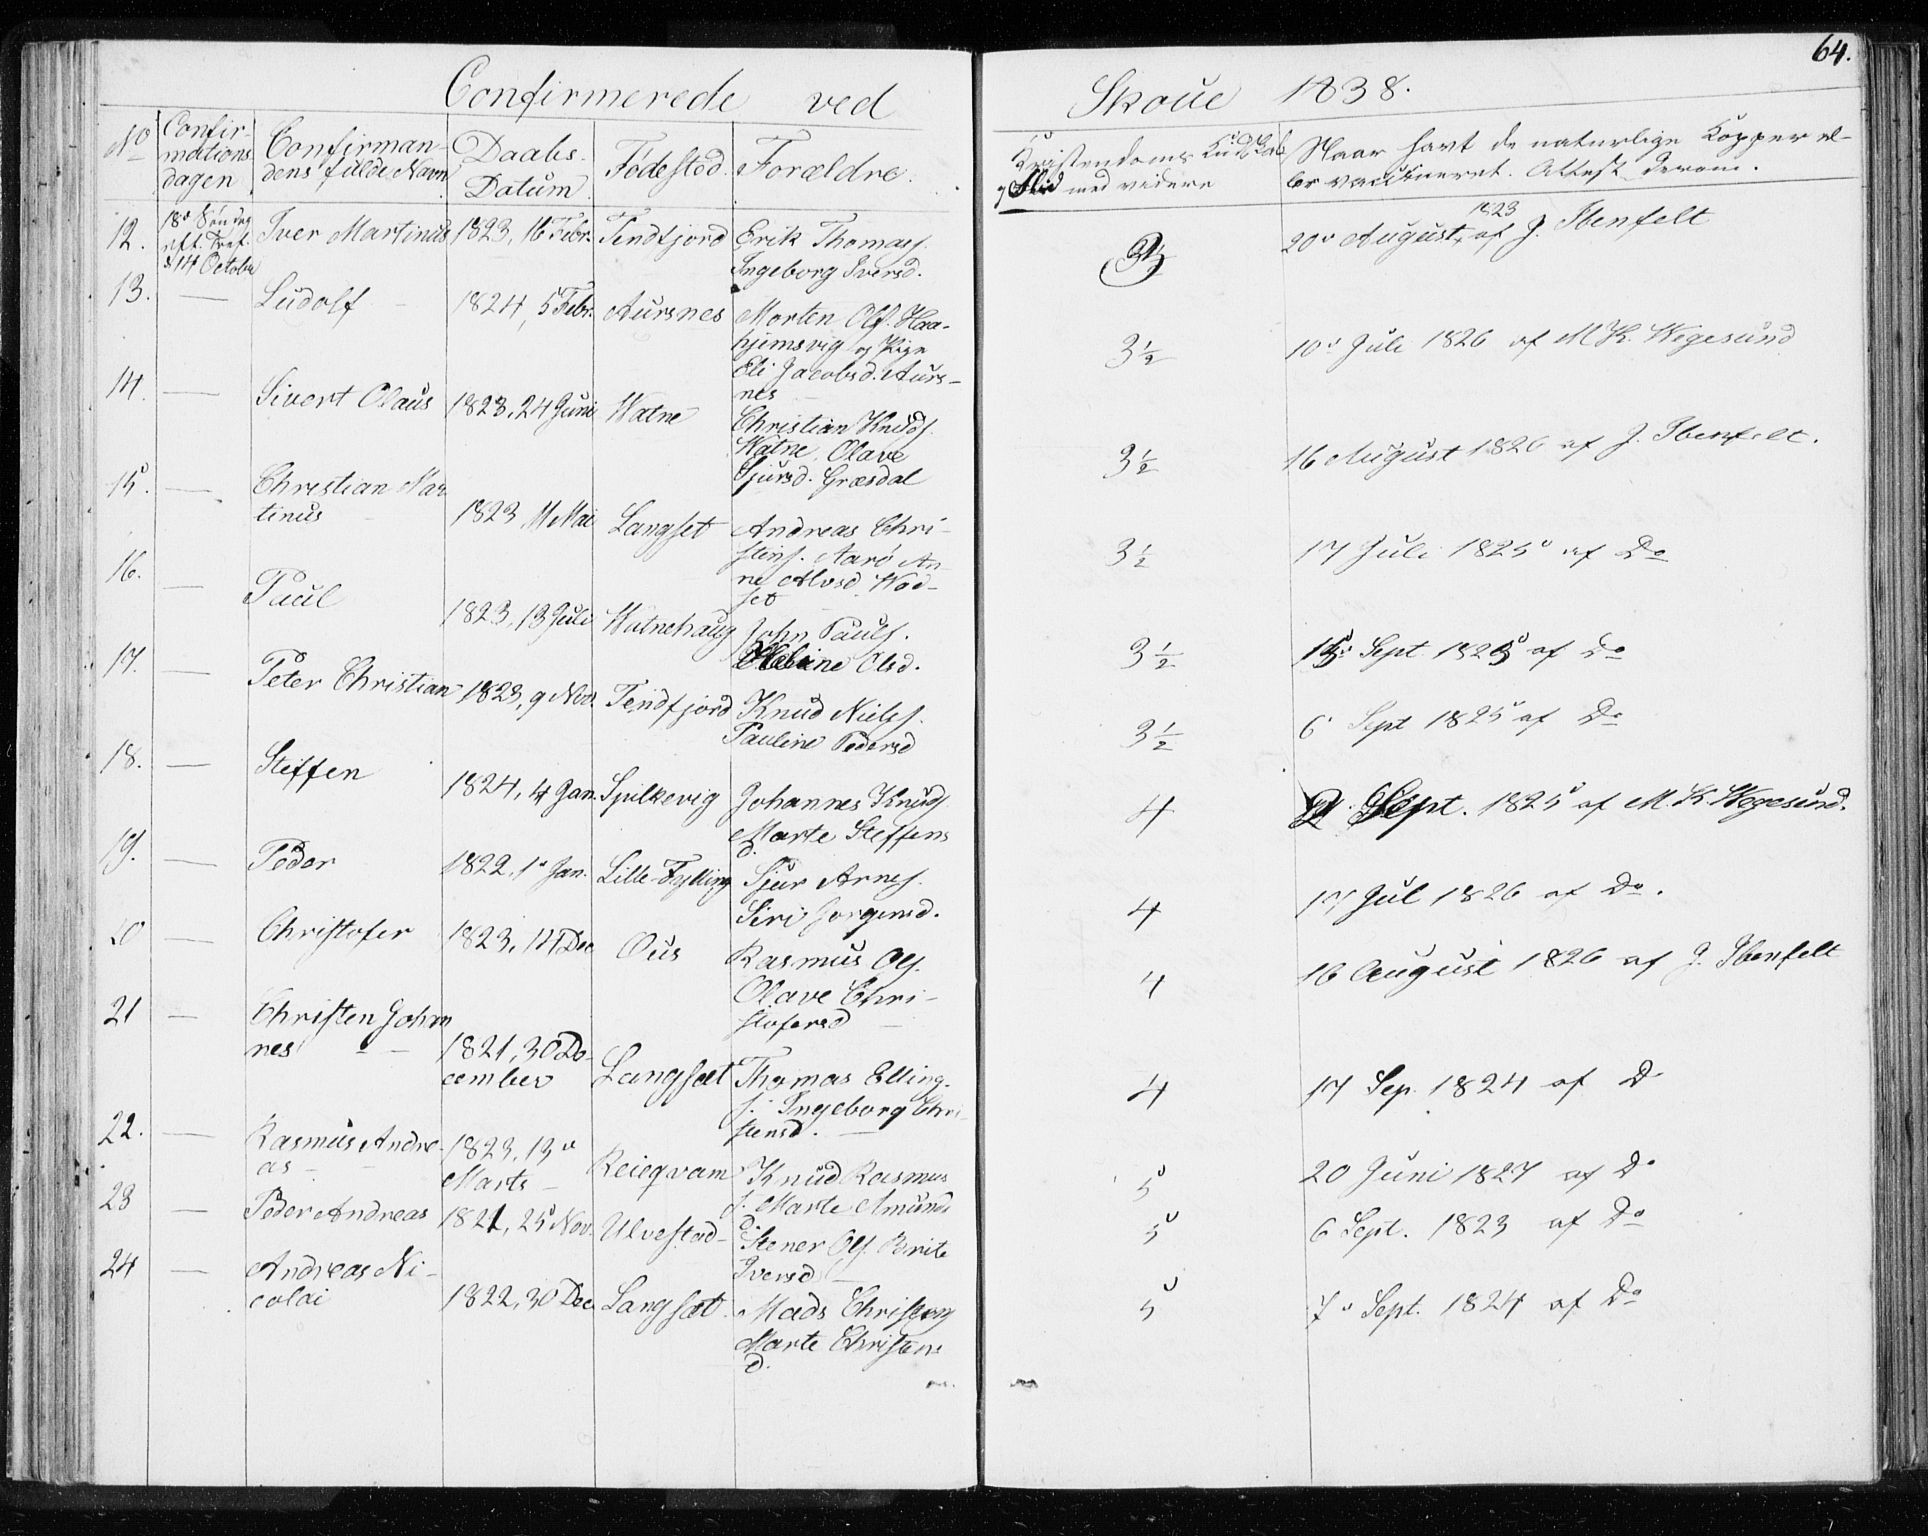 64.
Confirmerede ved Skoue 1838.
No Confirmations dagen Confirmandens fulde Navn Daabs Datum Fødested. Forældre. Kristendoms Kundskab og Flid med videre Naar havt de naturlige Kopper eller vaccineret. Attest derom.
12. 18de Søndag eft. Tref. d: 14 October Iver Martinus 1823, 16 Febr. Tendfjord Erik Thomass. Ingeborg Iversd. 3½ 20de August 1823 af J. Ibenfelt
13. — Ludolf 1824, 5 Febr. Aursnes Morten Ols. Haahjemsvig og Pige Eli Jacobsd. Aursnes 3½ 10de Juli 1826 af M. K. Wegesund
14. — Sivert Olaus 1823, 24 Juni Watne Christian Knuds. Watne, Olave Sjursd. Græsdal 3½ 16 August 1826 af J. Ibenfelt.
15. — Christian Martinus 1823, 11 Mai Langset Andreas Christins. Aarö Anne Alvsd. Wadset 3½ 17 Juli 1825 af Do
16. — Paul 1823, 13 Juli Watnehaug John Pauls. Olsd. 3½ Sept 1825 af Do
17. — Peter Christian 1823, 9 Nov. Tendfjord Knud Niels. Pauline Pedersd 3½ 6 Sept 1825 af Do
18. — Steffen 1824, 4 Jan. Spilkevig Johannes Knuds Marte Steffensd. 4 Sept. 1825 af M. K. Wegesund.
19. — Peder 1822, 1 Jan. Lille-Fylling Sjur Arnes. Siri Jorgensd. 4 17 Jul 1826 af Do.
20 — Christofer 1823, 14 Dec Ous Rasmus Ols. Olave Christofersd 4 16 August 1826 af J. Ibenfelt
21 — Christen Johannes 1821, 30 December Langsæt Thomas Ellings. Ingeborg Christensd. 4 17 Sep. 1824 af D
22. — Rasmus Andreas 1823, 13de Marts Reieqvam Knud Rasmuss. Marte Amundsd. 5 20 Juni 1827 af Do
23 — Peder Andreas 1821, 25 Nov. Ulvestad Stener Ols. Brite Iversd 5 6 Sept. 1823 af Do
24 — Andreas Nicolai 1822, 30 Dec Langsæt Mads Christens Marte Christensd. 5 7de Sept. 1824 af Do